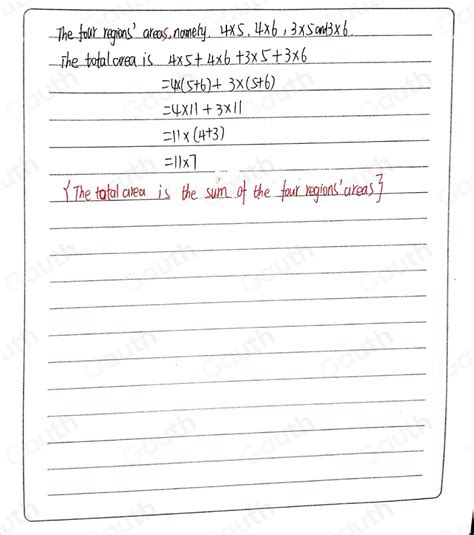 The four regions' areas, namely. 4×5, 4×6, 3×5 and 3×6.
The total area is 4×5+4×6+3×5+3×6
=4×(5+6)+ 3×(5+6)
=4×11 + 3×11
=11×(4+3)
=11×7
{The total area is the sum of the four regions' areas}